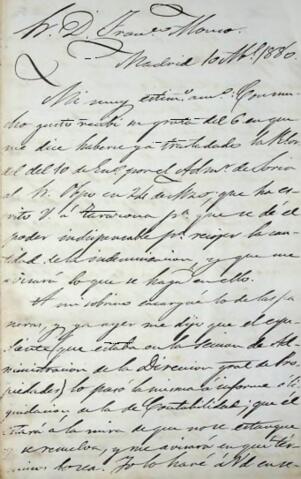 Sr. D. Franco Alonso
Madrid 10 Abl. 1880.
Mi muy estimo. amo. Con mu-
cho gusto recibí su grata del 6 en que
me dice haberse ya trasladado la Rl or
del del 10 de Eno. por el Admr. de Soria
al Sr. Obpo en 24 de Mzo, que ha es-
crito V. á Tarazona pa. que se dé el
poder indispensable pa. recoger la can-
tidad de la indemnizacion, y que me
avisará lo que se haga en ello.
A mi sobrino encargué lo de las
y ya ayer me dijo que el espe-
diente que estaba en la Seccion de Ad-
ministracion de la Direccion gral de Pro-
piedades) lo pasó la misma á informe ó li-
quidacion de la de Contabilidad; que él
estará á la mira de que no se estanque
y se resuelva, y me avisará en qué tér-
minos Yo lo haré á Vd en se-